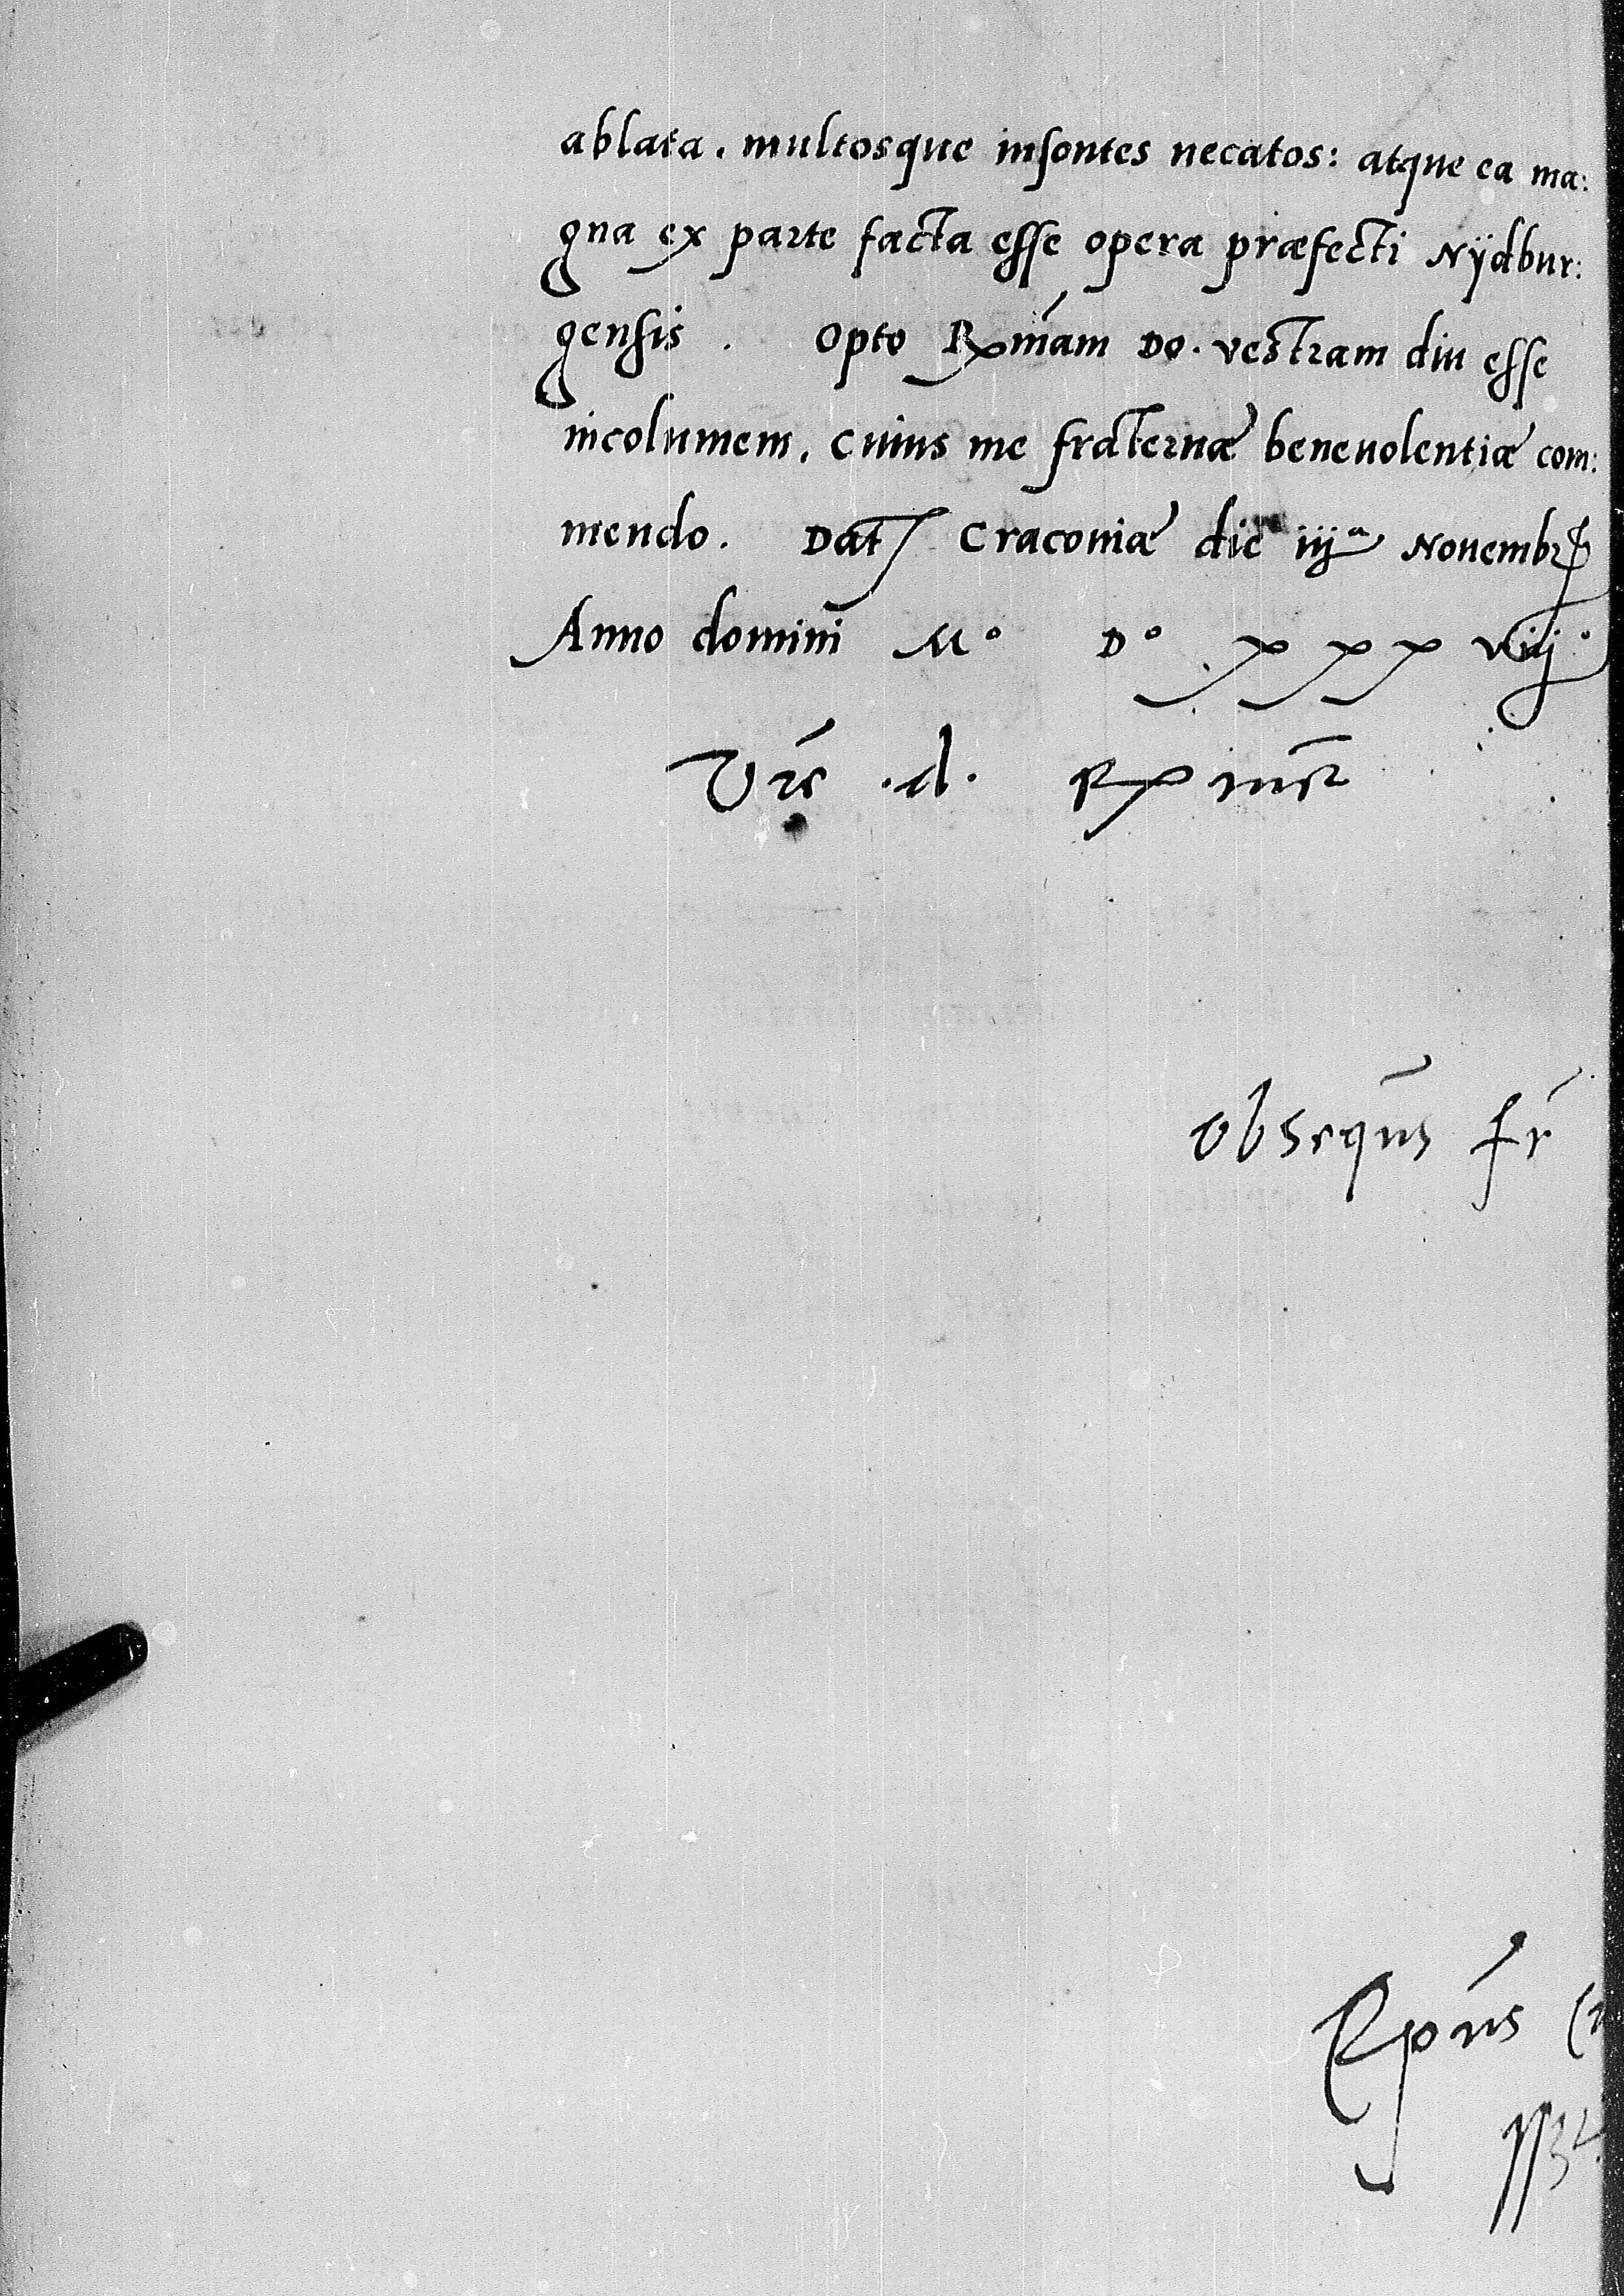 ablata. multosque insontes necatos: atque ea ma:
gna ex parte facta esse opera præfecti Nÿdbur:
gensis. Opto Rxmam Do. vestram diu esse
incolumem. cuius me fraternæ beneuolentiæ com:
mendo. Dat Cracouiæ die iija Nouembr
Anno domini Mo Do xxx viijo
Vrē .d. Rx
Obseqūs fr
Epūs